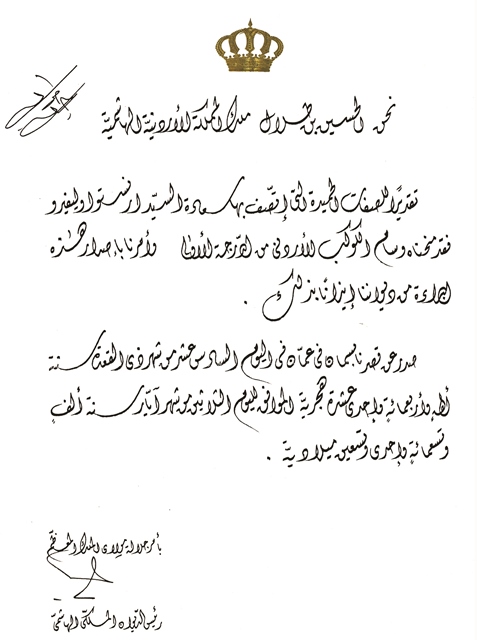 نحن الحسين بن طلال ملك المملكة الأردنية الهاشمية
تقديرًا للصفات الحميدة التي إتصف بها سعادة السيد ارنستو اوليفيرو
فقد منحناه وسام الكوكب الأردني من الدرجة الأولى وأمرنا باصدار هذه
البراءة من ديواننا إيذانًا بذلك .
صدر عن قصرنا بسمان في عمان في اليوم السادس عشر من شهر ذي القعدة سنة
ألف وأربعمائة وإحدى عشرة هجرية الموافق لليوم الثلاثين من شهر آيار سنة ألف
وتسعمائة وإحدى وتسعين ميلادية .
بأمر جلالة مولاي الملك المعظم
رئيس الديوان الملكي الهاشمي